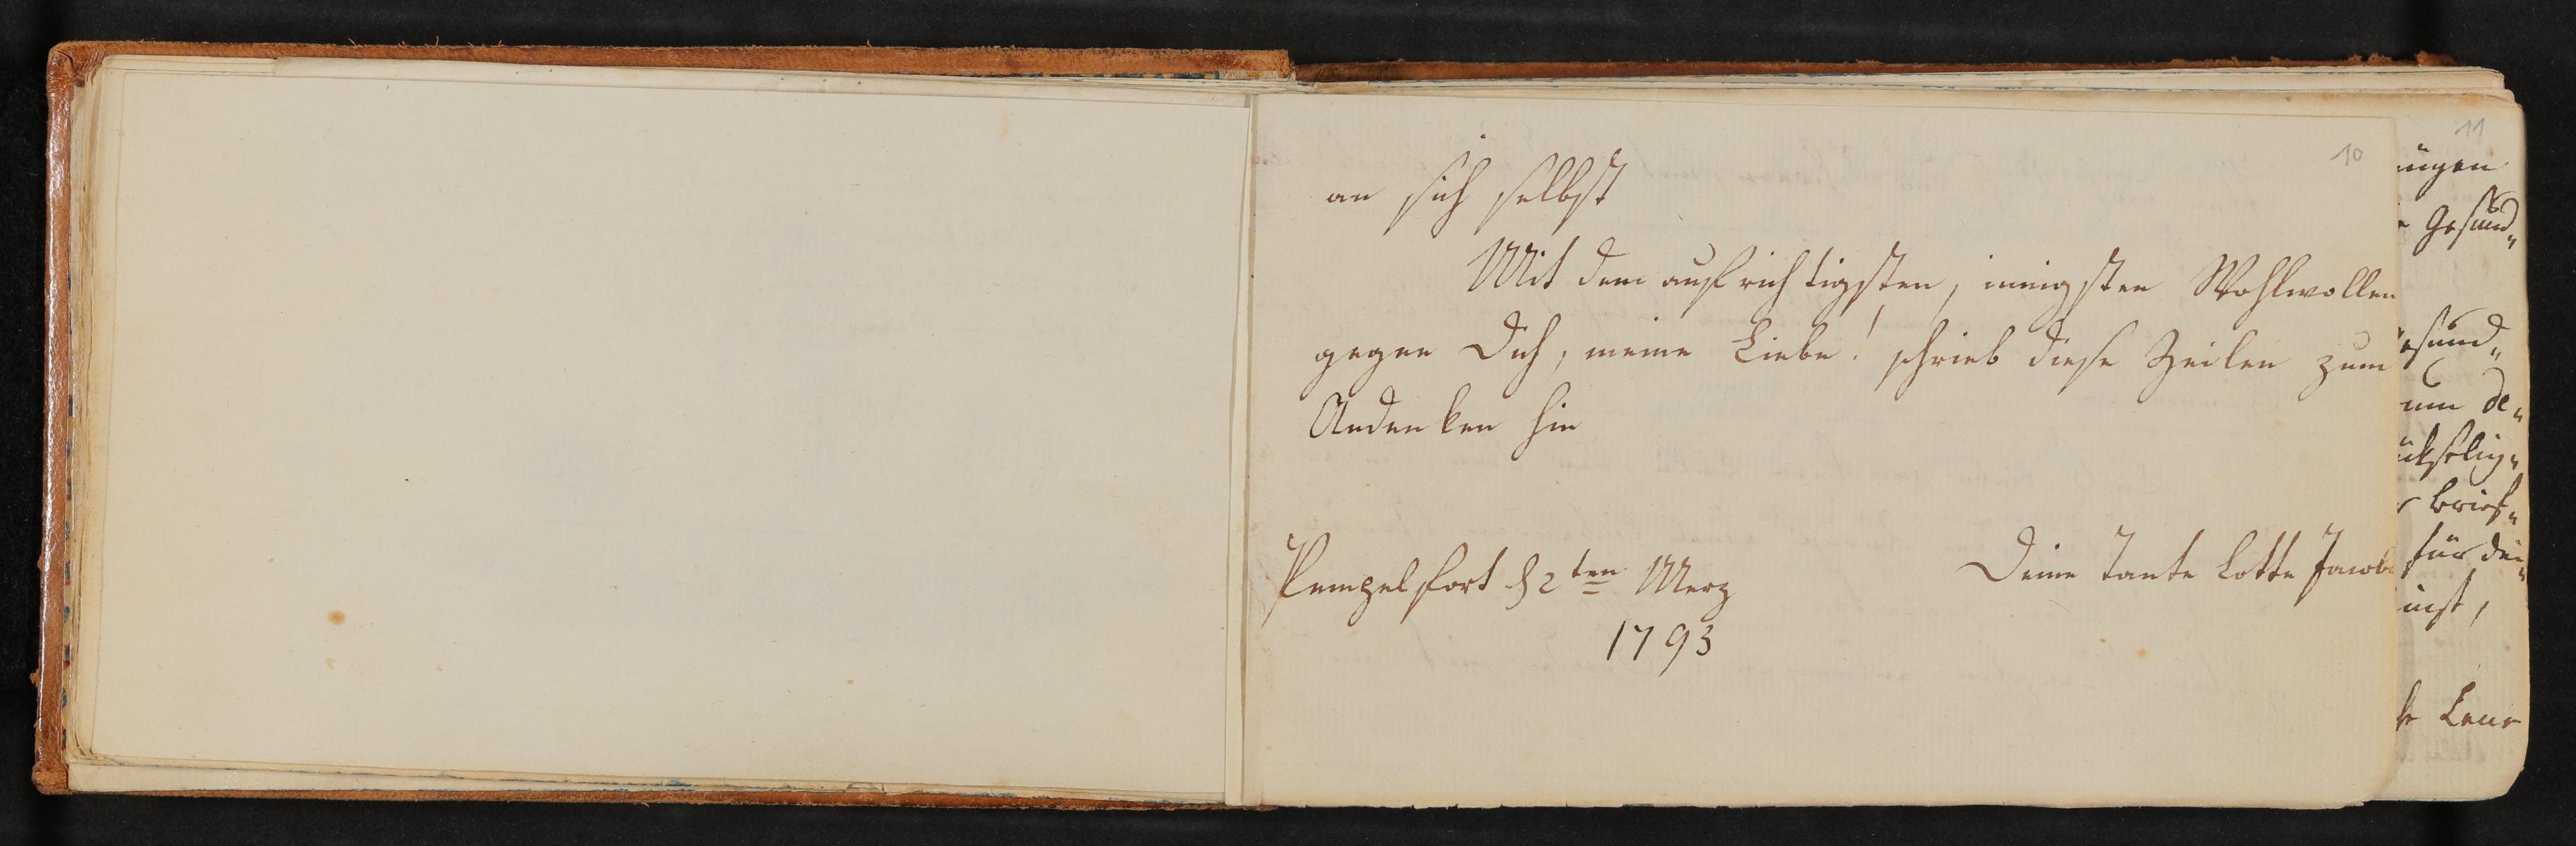 10
an sich selbst
Mit dem aufrichtigsten, innigsten Wohlwollen
gegen Dich, meine Liebe! schrieb diese Zeilen zum
Andenken hin
Deine Tante Lotte Jacobi
Pempelfort d 2ten Merz
1793
11
ügen
Gesund„
esund„
um de„
ückselig„
Brief„
für de„
inst,
Lene